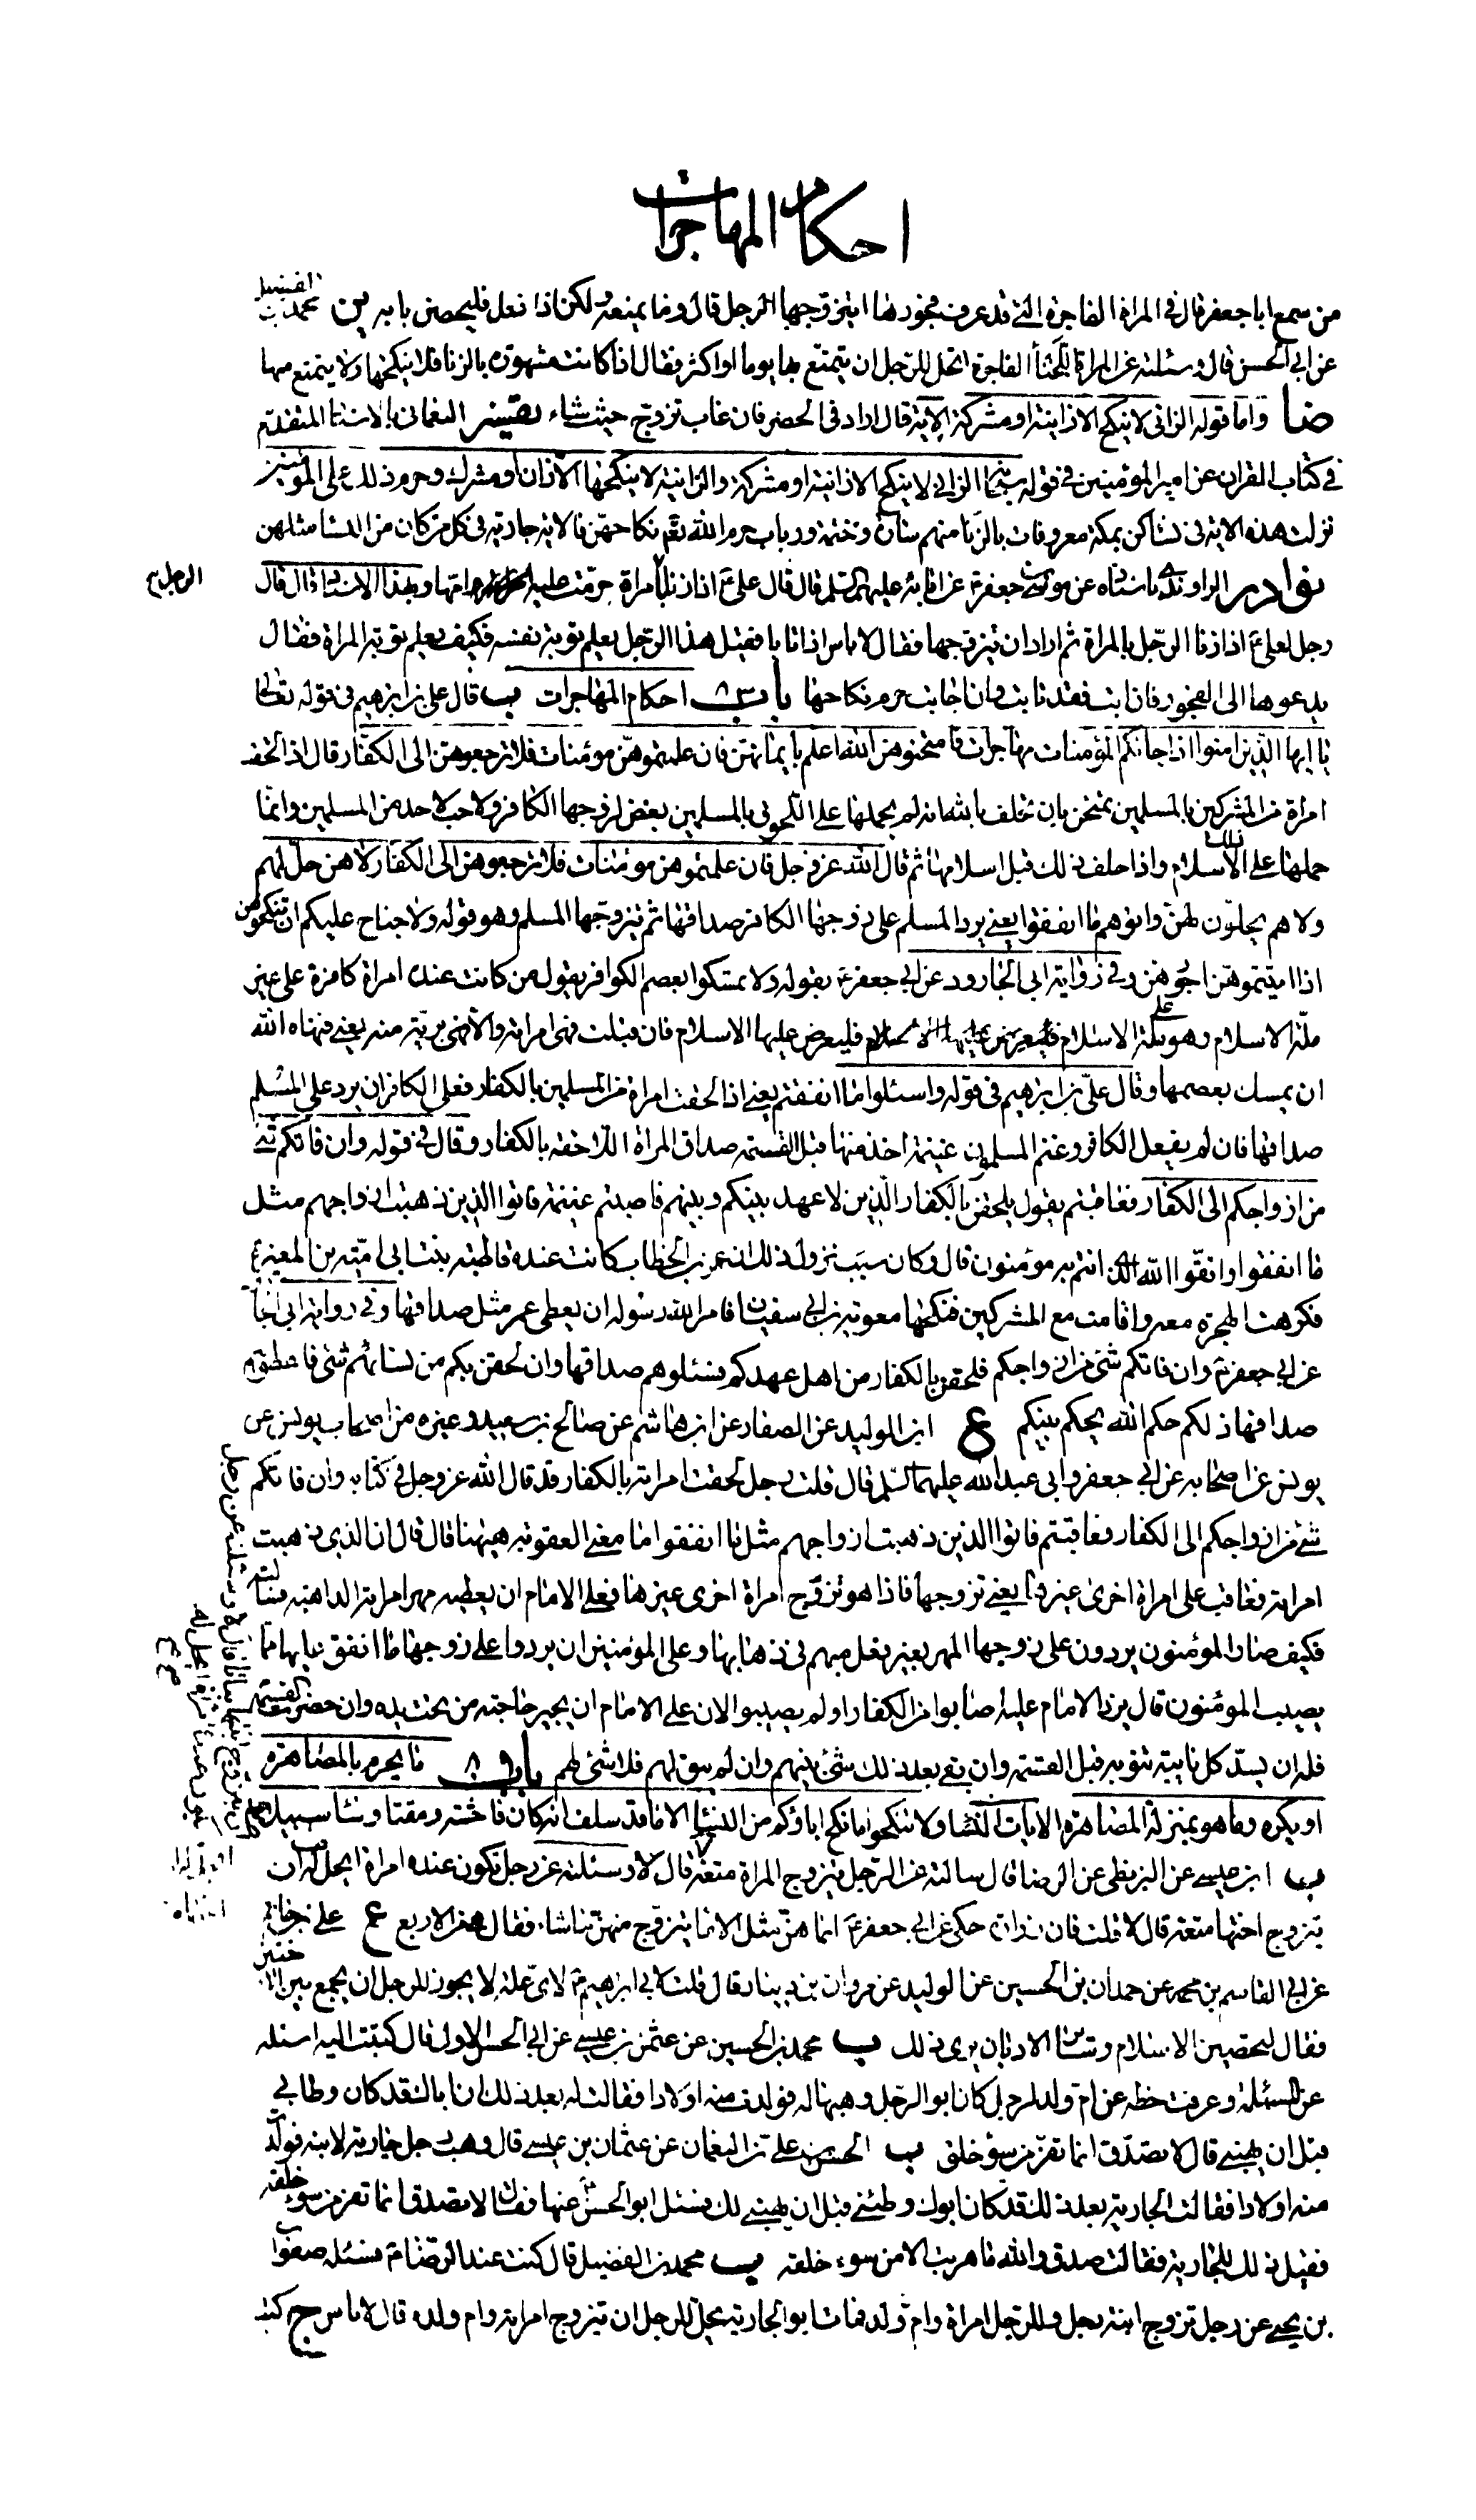 احكام المهاجرات
من سمع ابا جعفر قال في المراة الفاجرة التي قد عرف فجورها ايتزوجها الرجل قال وما يمنعه ولكن اذا فعل فليحصن بابه ين محمد بن الفضيل
عن ابي الحسن قال وسئلته عن المراة اللخناء الفاجرة اتحل للرجل ان يتمتع بها يوما او اكثر فقال اذا كانت مشهورة بالزنا فلا ينكحها ولا يتمتع بها
ضا واما قوله الزاني لا ينكح الا زانية او مشركة الاية قال اراد في الحضر فان غاب تزوج حيث شاء تفسير النعماني بالاسناد المتقدم
في كتاب القران عن امير المؤمنين في قوله سبحانه الزاني لا ينكح الا زانية او مشركة والزانية لا ينكحها الا زان او مشرك وحرم ذلك على المؤمنين
نزلت هذه الاية في نساء كن بمكة معروفات بالزنا منهم سارة وحنتمة ورباب حرم الله تعالى نكاحهن فالاية جارية في كل من كان من النساء مثلهن
نوادر الراوندي باسناده عن موسى بن جعفر عن ابائه عليهم السلم قال قال علي ع اذا زنا بامراة حرمت عليه امها وبهذا الاسناد قال قال
الرجل
رجل لعلي ع اذا زنا الرجل بالمراة ثم اراد ان يتزوجها فقال لا باس اذا تابا فقيل هذا الرجل يعلم توبة نفسه فكيف يعلم توبة المراة فقال
يدعوها الى الفجور فان ابت فقد تابت وان اجابت حرم نكاحها باب احكام المهاجرات ب قال علي بن ابراهيم في قوله تعالى
يا ايها الذين امنوا اذا جائكم المؤمنات مهاجرات فامتحنوهن الله اعلم بايمانهن فان علمتموهن مؤمنات فلا ترجعوهن الى الكفار قال اذا لحقت
امراة من المشركين بالمسلمين تمتحن بان تحلف بالله انه لم يحملها على اللحوق بالمسلمين بغض لزوجها الكافر ولا حب لاحد من المسلمين وانما
حملها على ذلك الاسلام واذا حلف ذلك قبل اسلامها ثم قال الله عز وجل فان علمتموهن مؤمنات فلا ترجعوهن الى الكفار لا هن حل لهم
ولا هم يحلون لهن واتوهم ما انفقوا يعني يرد المسلم على زوجها الكافر صداقها ثم يتزوجها المسلم وهو قوله ولا جناح عليكم ان تنكحوهن
اذا اتيتموهن اجورهن وفي رواية ابي الجارود عن ابي جعفر ع بقوله ولا تمسكوا بعصم الكوافر يقول من كانت عنده امراة كافرة على غير
ملة الاسلام وهو على ملة الاسلام فليعرض عليها الاسلام فان قبلت فهي امراته والا فهي برية منه يعني فنهاه الله
ان يمسك بعصمها وقال علي بن ابراهيم في قوله واسئلوا ما انفقتم يعني اذا لحقت امراة من المسلمين بالكفار فعلى الكافر ان يرد على المسلم
صداقها فان لم يفعل الكافر وغنم المسلمون غنيمة اخذ منها قبل القسمة صداق المراة اللاحقة بالكفار وقال في قوله وان فاتكم شئ
من ازواجكم الى الكفار فعاقبتم يقول يلحقن بالكفار الذين لا عهد بينكم وبينهم فاصبتم غنيمة فاتوا الذين ذهبت ازواجهم مثل
ما انفقوا واتقوا الله الذي انتم به مؤمنون قال وكان سبب نزول ذلك ان عمر بن الخطاب كانت عنده فاطمة بنت ابي امية بن المغيرة
فكرهت الهجرة معه واقامت مع المشركين فنكحها معوية بن ابي سفيان فامر الله رسوله ان يعطي عمر مثل صداقها وفي رواية ابي الجا
عن ابي جعفر ع وان فاتكم شئ من ازواجكم فلحقن بالكفار من اهل عهدكم فسئلوهم صداقها وان لحقن بكم من نسائهم شئ فاعطوهم
صداقها ذلكم حكم الله يحكم بينكم ع ابن الوليد عن الصفار عن ابن هاشم عن صالح بن سعيد وغيره من اصحاب يونس عن
يونس عن اصحابه عن ابي جعفر وابي عبد الله عليهما السلم قال قلت رجل لحقت امراته بالكفار وقد قال الله عز وجل في كتابه وان فاتكم
شئ من ازواجكم الى الكفار فعاقبتم فاتوا الذين ذهبت ازواجهم مثل ما انفقوا ما معنى العقوبة ههنا قال قال ان الذي ذهبت
امراته فعاقب على امراة اخرى غيرها يعني تزوجها فاذا هو تزوج امراة اخرى غيرها فعلى الامام ان يعطيه مهر امراته الذاهبة فسالته
فكيف صار المؤمنون يردون على زوجها المهر بغير فعل منهم في ذهابها وعلى المؤمنين ان يردوا على زوجها ما انفق عليها مما
يصيب المؤمنون قال يرد الامام عليه اصابوا من الكفار او لم يصيبوا لان على الامام ان يجبر حاجته من تحت يده وان حضرت القسمة
فله ان يسد كل نايبة تنوبه قبل القسمة وان بقي بعد ذلك شئ بينهم وان لم يبق لهم فلا شئ لهم باب ما يحرم بالمصاهرة
او يكره وما هو بمنزلة المصاهرة الايات النساء ولا تنكحوا ما نكح اباؤكم من النساء الا ما قد سلف انه كان فاحشة ومقتا وساء سبيلا
ب ابن عيسى عن البزنطي عن الرضا قال سالته عن الرجل يتزوج المراة متعة قال لا وسئلته عن رجل تكون عنده امراة ايحل له ان
يتزوج اختها متعة قال لا قلت فان زرارة حكى عن ابي جعفر ع انما هن مثل الاماء يتزوج منهن ما شاء فقال هن من الاربع ع علي بن حاتم
عن ابي القاسم بن محمد عن حمدان بن الحسين عن الوليد عن مروان بن دينار قال قلت لابي ابراهيم ع لاي علة لا يجوز للرجل ان يجمع بين الاختين
فقال لتحصين الاسلام وسائر الاديان يرى ذلك ب محمد بن الحسين عن عثمن بن عيسى عن ابي الحسن الاول قال كتبت اليه اسئله
عن المسئلة وعرفت خطه عن ام ولد لرجل كان ابو الرجل وهبها له فولدت منه اولادا فقالت له بعد ذلك ان اباك قد كان وطاني
قبل ان يهبني قال لا تصدق انما تفر من سوء خلق ب الحسن بن علي بن النعمان عن عثمان بن عيسى قال وهب رجل جارية لابنه فولدت
منه اولادا فقالت الجارية بعد ذلك قد كان ابوك وطئني قبل ان يهبني لك فسئل ابو الحسن ع عنها فقال لا تصدق انما تفر من سوء خلقه
فقيل ذلك للجارية فقالت صدق والله ما هربت الا من سوء خلقه ب محمد بن الفضيل قال كنت عند الرضا ع فسئله صفوان
بن يحيى عن رجل تزوج ابنة رجل وللرجل امراة وام ولد فمات ابو الجارية يحل للرجل ان يتزوج امراته وام ولده قال لا باس ج كتب